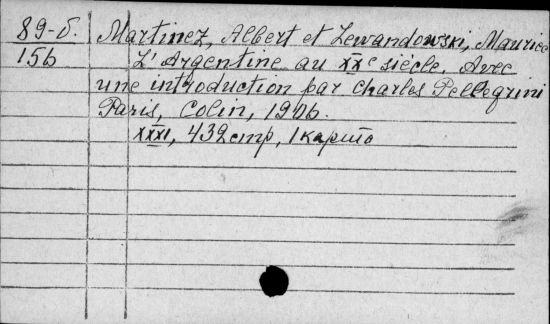 89-б. Martinez, Albert et Lewandowski, Maurice
156 L'Argentine au XXe siècle. Avec
une introduction par Charles Pellegrini
Paris, Colin, 1906.
XXXI, 432 стр, 1 карта